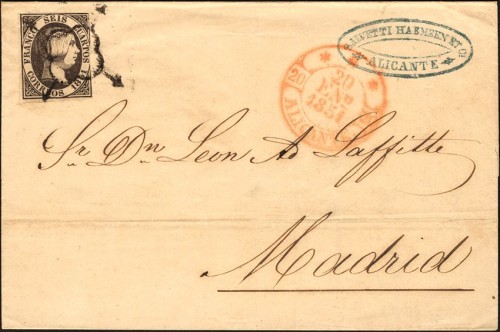 FRANCO SEIS CUARTOS 1851
CORREOS
SALVETTI HAEMSEN ET Cí
ALICANTE
20
20
ENE
1851
ALICANTE
Sr. Dn Leon Ad Laffitte
Madrid